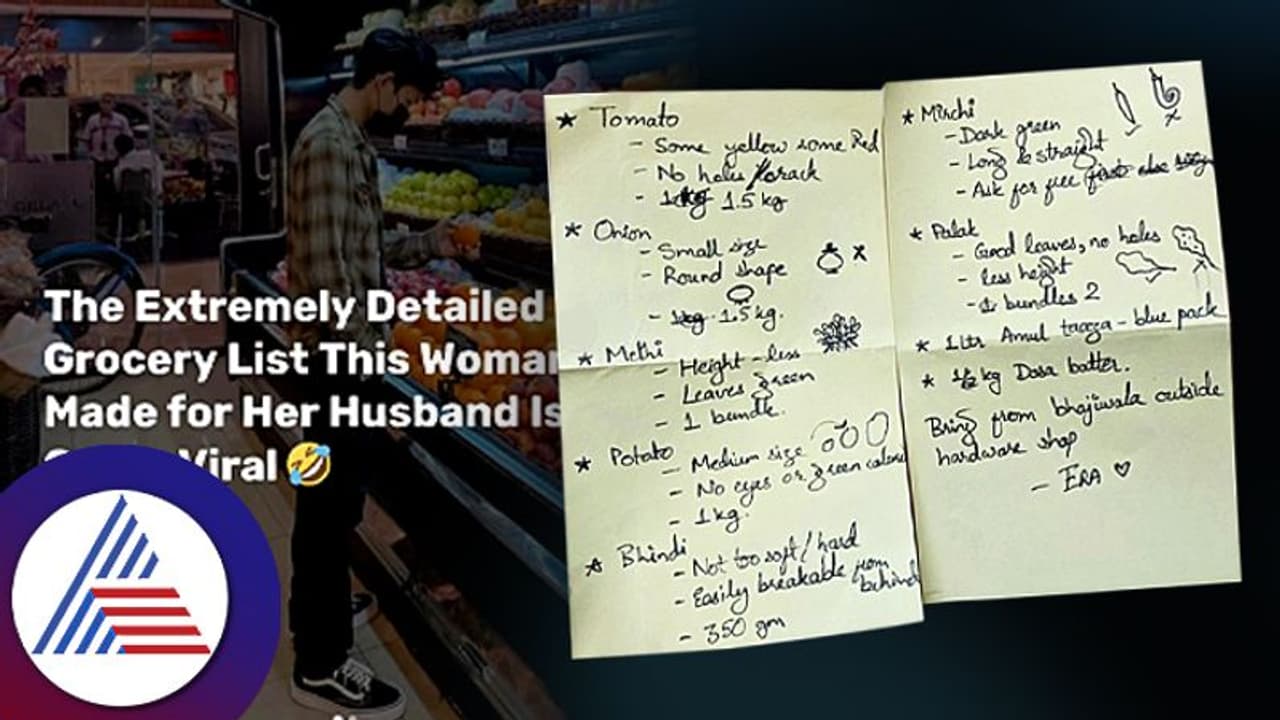 The Extremely Detailed
Grocery List This Woman
Made for Her Husband Is
Viral 🤣
★ Tomato
- Some yellow some Red
- No holes / crack
- 1 kg 1.5 kg
★ Onion
- Small size
- Round shape
- 1 kg 1.5 kg.
★ Methi
- Height - less
- Leaves green
- 1 bundle.
★ Potato
- Medium size
- No eyes or green colored
- 1 kg.
★ Bhindi
- Not too soft / hard
- Easily breakable from
behind
- 350 gm
★ Mirchi
- Dark green
- Long & straight
- Ask for free
★ Palak
- Good leaves, no holes
- less height
- bundles 2
★ 1 ltr Amul taaza - blue pack
★ 1/2 kg Dosa batter.
Bring from bhajiwala outside
hardware shop
- ERA ♡